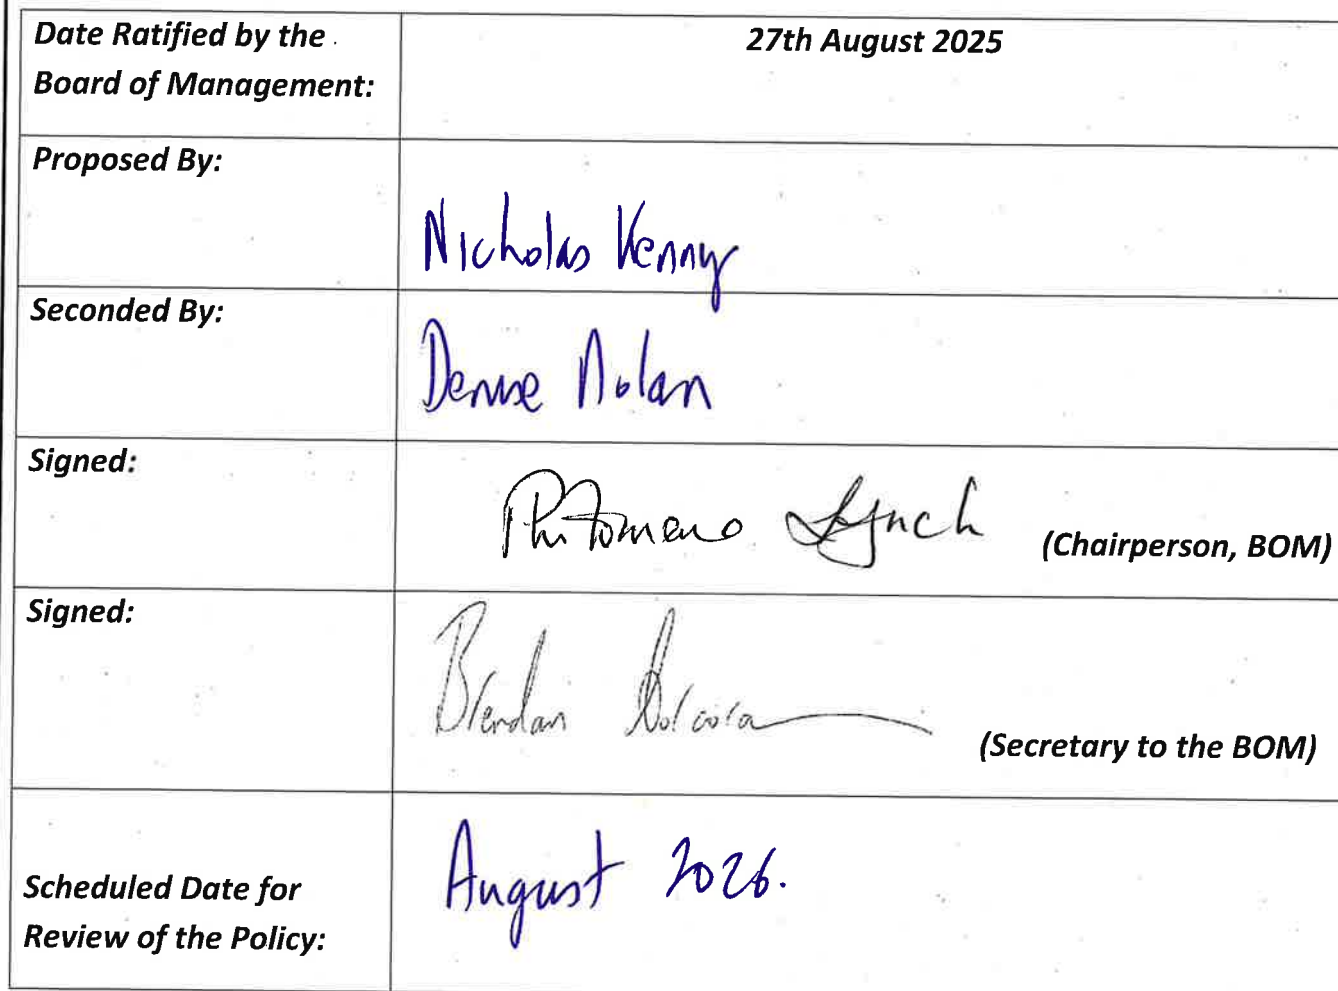 Date Ratified by the
Board of Management:
27th August 2025
Proposed By:
Nicholas Kenny
Seconded By:
Denise Nolan
Signed:
Philomena Lynch
(Chairperson, BOM)
Signed:
Brendan
(Secretary to the BOM)
Scheduled Date for
Review of the Policy:
August 2026.